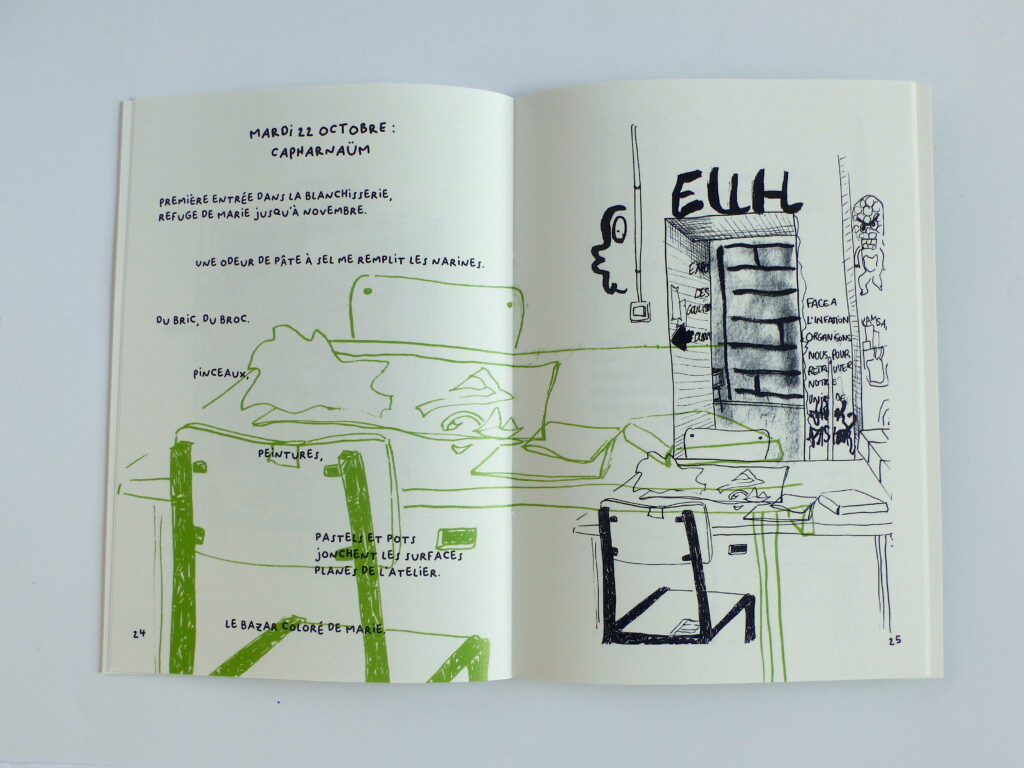 MARDI 22 OCTOBRE :
CAPHARNAÜM
PREMIÈRE ENTRÉE DANS LA BLANCHISSERIE,
REFUGE DE MARIE JUSQU'À NOVEMBRE.
UNE ODEUR DE PÂTE À SEL ME REMPLIT LES NARINES.
DU BRIC, DU BROC.
PINCEAUX,
PEINTURES,
PASTELS ET POTS
JONCHENT LES SURFACES
PLANES DE L'ATELIER.
LE BAZAR COLORÉ DE MARIE.
24
EUH
DES
FACE A
L'INFATION
ORGANISONS
NOUS POUR
NOTRE
DE
25